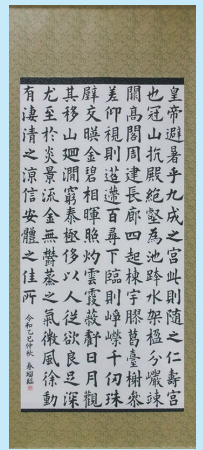 皇帝避暑乎九成之宮此則隨之仁壽宮
也冠山抗殿絕壑為池跨水架楹分巖竦
闕高閣周建長廊四起棟宇膠葛臺榭參
差仰視則迢遰百尋下臨則崢嶸千仞珠
璧交暎金碧相暉照灼雲霞蔽虧日月觀
其移山迴澗窮泰極侈以人從欲良足深
尤至於炎景流金無鬱蒸之氣微風徐動
有淒清之涼信安體之佳所
令和乙巳仲秋 春臨